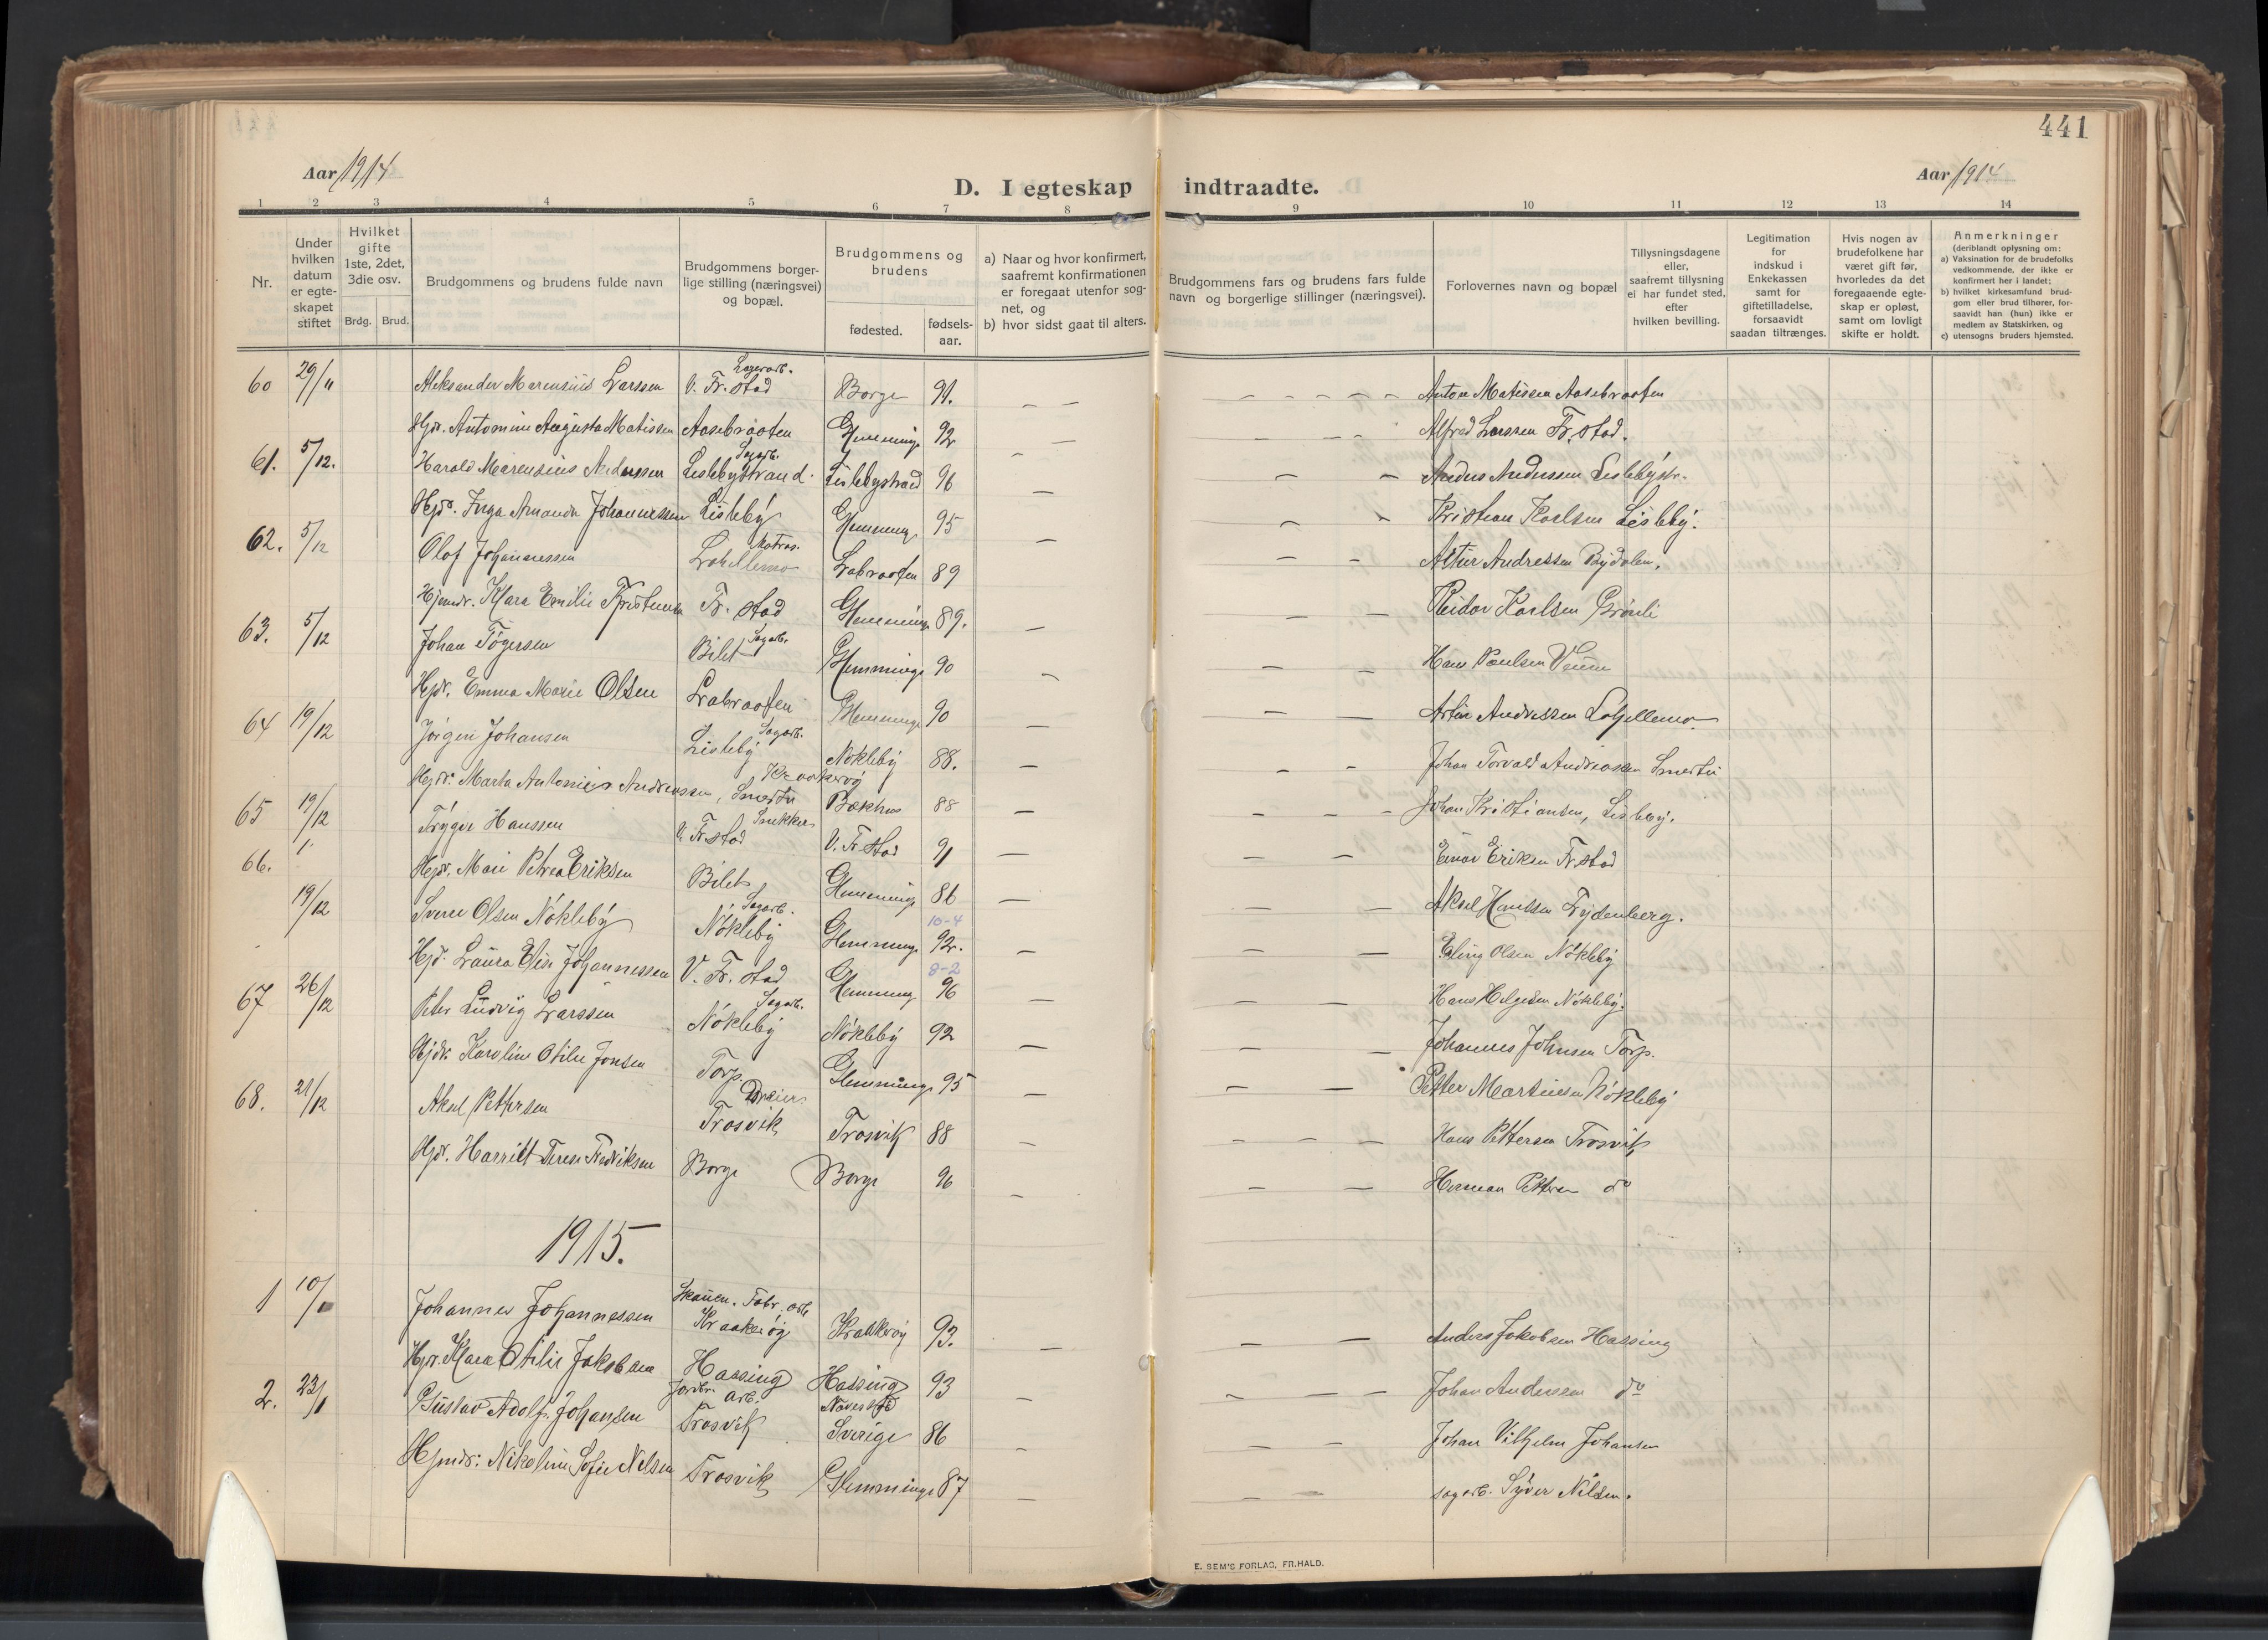 441
Aar 1914
D. I egteskap indtraadte.
Aar 1914
1 2 3 4 5 6 7 8 9 10 11 12 13 14
Nr.
Under hvilken datum er egteskapet stiftet
Hvilket gifte 1ste, 2det, 3die osv.
Brdg. Brud.
Brudgommens og brudens fulde navn
Brudgommens borgerlige stilling (næringsvei) og bopæl.
Brudgommens og brudens
fødested.
fødselsaar.
a) Naar og hvor konfirmert, saafremt konfirmationen er foregaat utenfor sognet, og
b) hvor sidst gaat til alters.
Brudgommens fars og brudens fars fulde navn og borgerlige stillinger (næringsvei).
Forlovernes navn og bopæl
Tillysningsdagene eller, saafremt tillysning ei har fundet sted, efter hvilken bevilling.
Legitimation for indskud i Enkekassen samt for giftetilladelse, forsaavidt saadan tiltrænges.
Hvis nogen av brudefolkene har været gift før, hvorledes da det foregaaende egteskap er opløst, samt om lovligt skifte er holdt.
Anmerkninger
(deriblandt oplysning om:
a) Vaksination for de brudefolks vedkommende, der ikke er konfirmert her i landet;
b) hvilket kirkesamfund brudgom eller brud tilhører, forsaavidt han (hun) ikke er medlem av Statskirken, og
c) utensogns bruders hjemsted.
60 29/11 Aleksander Marensius Larssen Lagerarb. V. Fr.stad Borge 91. — — Anton Matissen Aasebraaten
Hjdr. Antomine Augusta Matissen Aasebraaten Glemminge 92 — Alfred Larssen Fr.stad.
61. 5/12. Harald Marensius Anderssen Sagarb. Lislebystrand. Lislebystrand 96 — Anders Anderssen Lislebystr.
Hjdr. Inga Amanda Johannessen Lisleby Glemminge 95 — Kristian Karlsen Lisleby.
62. 5/12 Olaf Johannessen Matros. Labraaten 89 — Artur Andressen
Hjemdr. Klara Emilie Fr. stad Glemminge 89. — Reidar Karlsen
63. 5/12 Johan Tøgersen Sagarb. Bilet Glemminge 90 — Hans Paulsen
Hjdr. Emma Marie Olsen Labraaten Glemminge 90 — Andressen
64 19/12 Jörgen Johansen Sagarb. Lisleby Nökleby 88. — Johan Torvald Andreassen Smertu
Hjdr. Marta Antonie Andreassen, Smertu Kraakeröy Bækhus 88 — Johan Kristiansen, Lisleby.
65 19/12 Trygve Hanssen Snekker V. Fr.stad V. Fr.stad 91 — Einar Eriksen Fr.stad
66. Hjdr. Marie Petrea Eriksen Bilet Glemminge 86 — Aksel Hanssen
19/12 Sverre Olsen Nökleby Sagarb. Nökleby Glemminge 10-4 92. — Erling Olsen Nökleby
Hjd. Laura Elise Johannessen V. Fr. stad Glemminge 8-2 96 — Hans Helgesen Nökleby.
67 26/12 Peter Ludvig Larssen Sagarb. Nökleby Nökleby 92 — Johannes Johnsen Torp.
Hjdr. Karoline Otilie Jonsen Torp. Glemminge 95 — Petter Martinsen Nökleby
68. 21/12 Aksel Pettersen Dreier Trosvik Trosvik 88 — Hans Pettersen Trosvik
Hjdr. Harriett Terese Fredriksen Borge Borge 96 — Herman Pettersen do
1915.
1 10/1 Johannes Johannessen Skauen. Fabr. arb Kraakeröy Kraakeröy 93. — Anders Jakobsen Hassing
Hjdr. Klara Otilie Jakobsen Hassing Hassing 93 — Johan Anderssen do
2. 23/1 Gustav Adolf Johansen Jordbr. arb. Trosvik Sverige 86 — Johan Vilhelm Johansen
Hjmdr: Nikoline Sofie Nilsen Trosvik Glemminge 87 — sagarb. Syver Nilsen.
E. SEM'S FORLAG, FR.HALD.